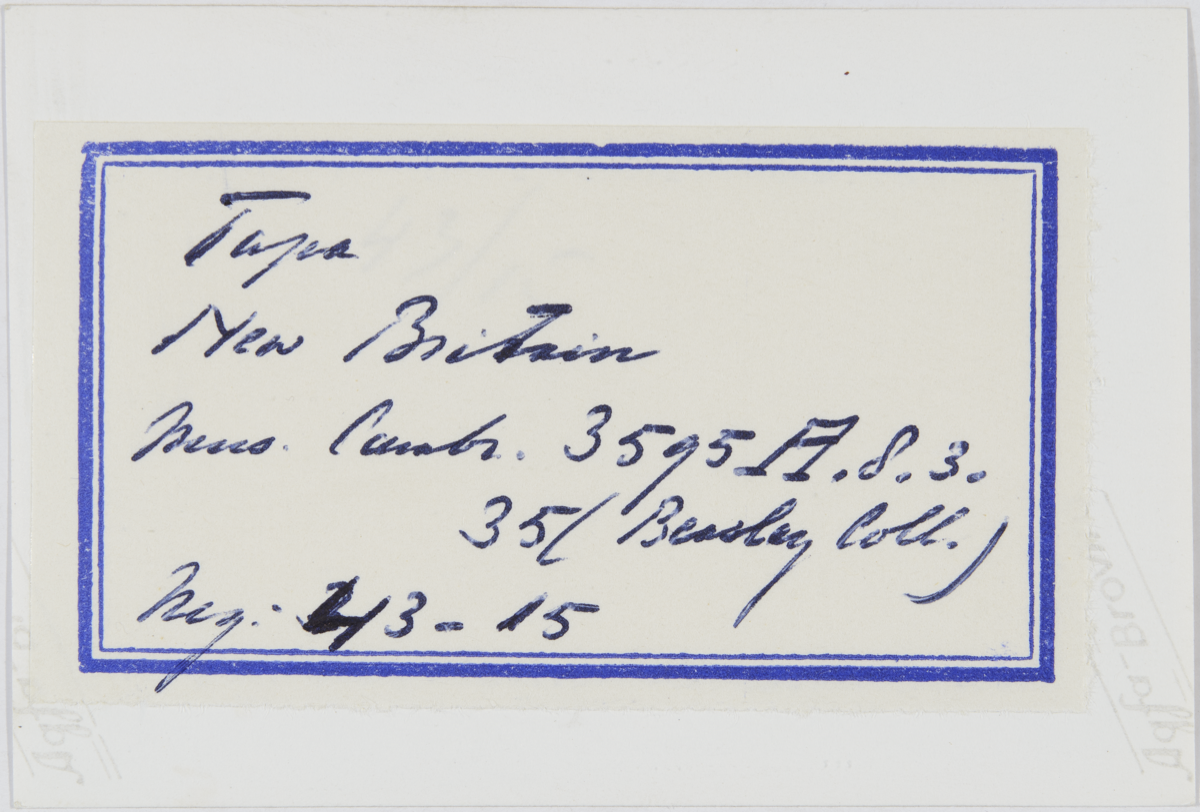 Tapa
New Britain
Mus. Cambr. 3595 A.8.3.
35 (Beasley Coll.)
Neg: 43-15
Agfa-Brovi
Agf